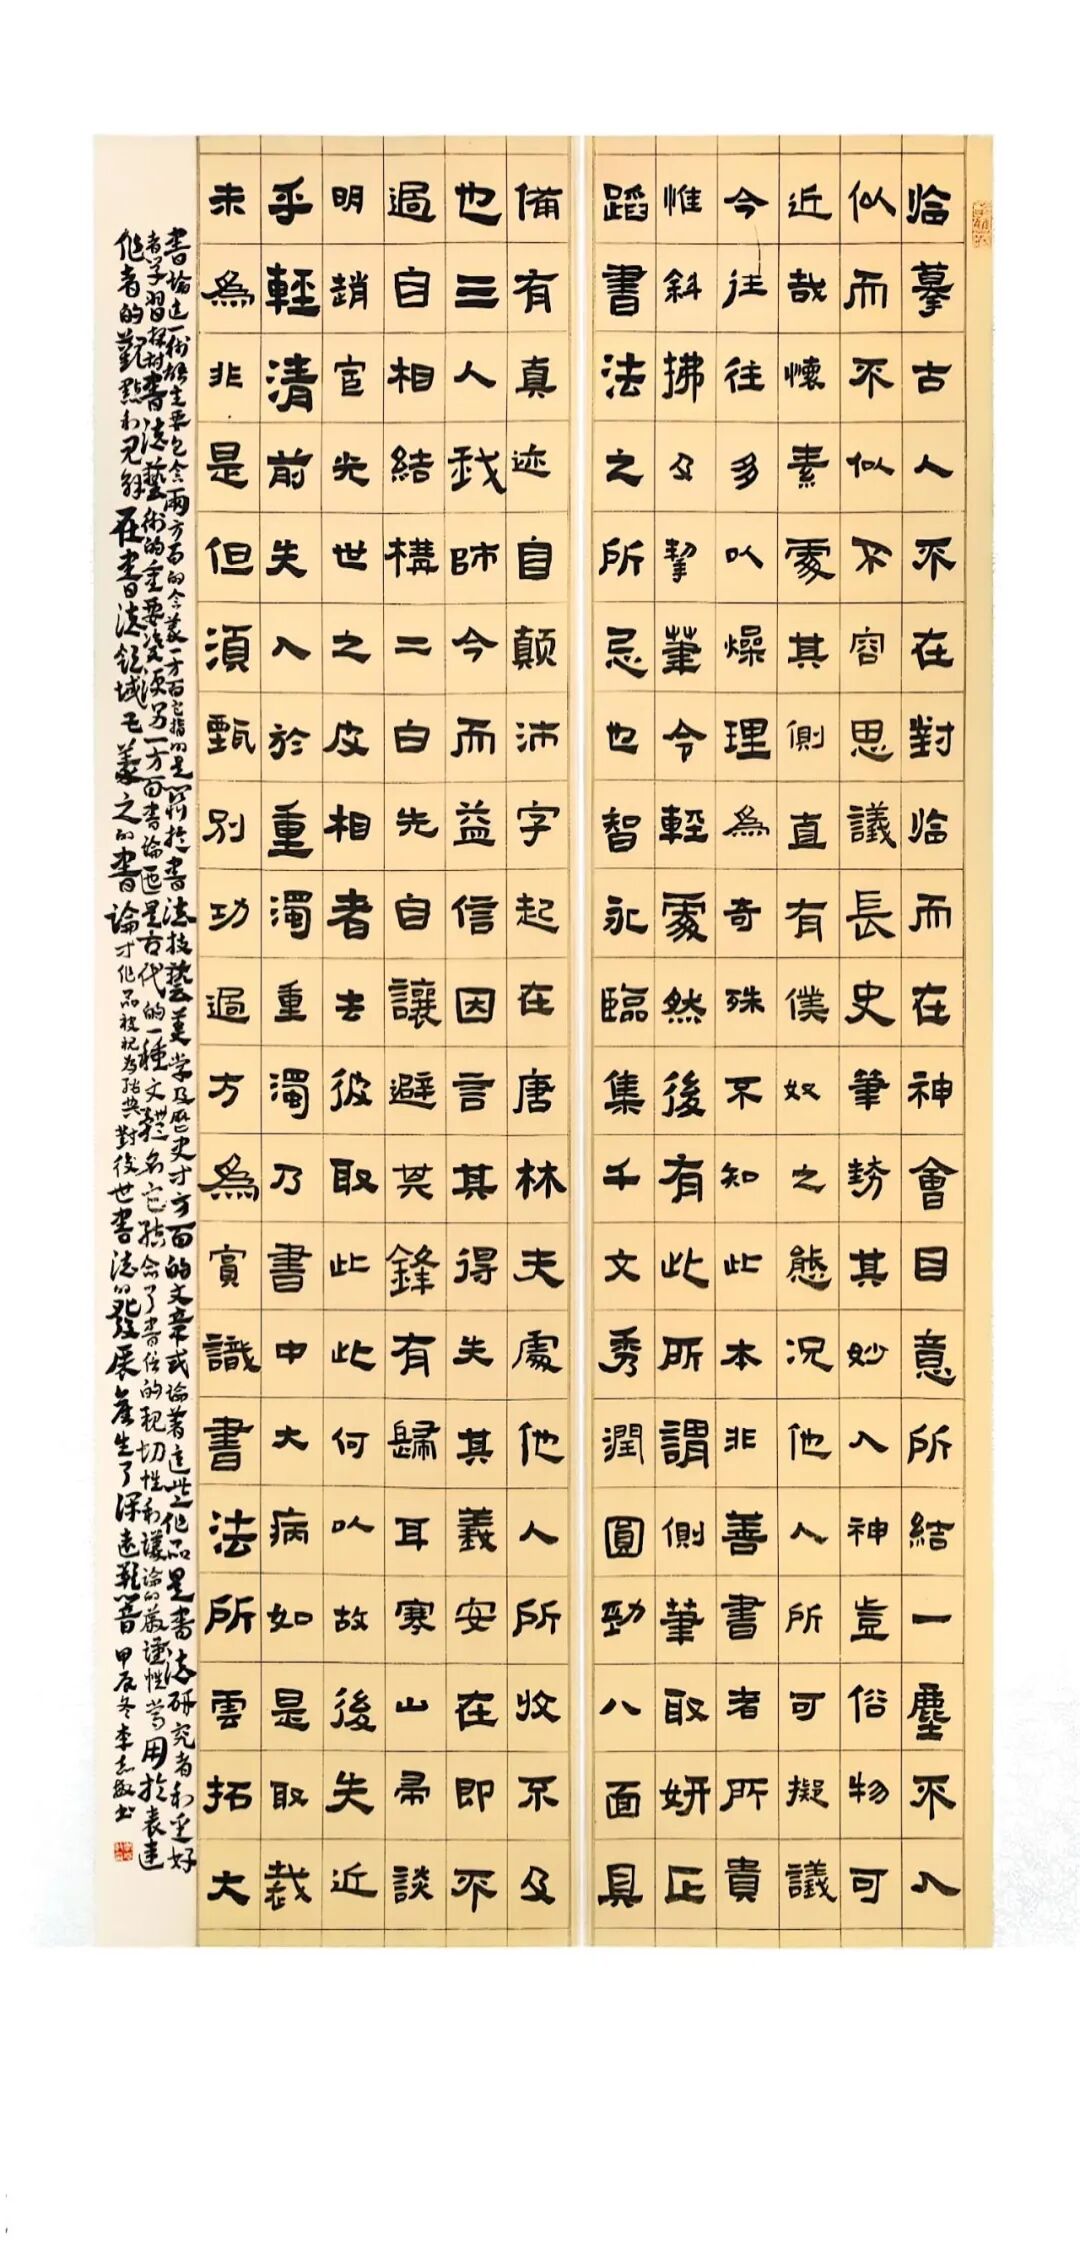 临摹古人不在對临而在神會目意所結一塵不入
似而不似不容思議長史筆勢其妙入神豈俗物可
近哉懷素處其側直有僕奴之態況他人所可擬議
今往往多以燥理為奇殊不知此本非善書者所貴
惟斜拂及挈筆令輕處然後有此所謂側筆取妍正
蹈書法之所忌也智永臨集千文秀潤圓勁八面具
備有真迹自顛沛字起在唐林夫處他人所收不及
也三人我師今而益信因言其得失其義安在即不
過自相結構二白先自讓避其鋒有歸耳寒山帚談
明趙宧光世之皮相者去彼取此此何以故後失近
乎輕清前失入於重濁重濁乃書中大病如是取裁
未為非是但須甄別功過方為賞識書法所雲拓大
書論這一術語主要包含兩方面的含義一方面它指的是關於書法技藝美學及歷史等方面的文章或論著這些作品是書法研究者和愛好
者學習探討書法藝術的重要資源另一方面書論也是古代的一種文體名它結合了書信的親切性和議論的嚴謹性常用於表達
作者的觀點和見解在書法領域王羲之的書論等作品被視為經典對後世書法的發展產生了深遠影響甲辰冬李志敏書